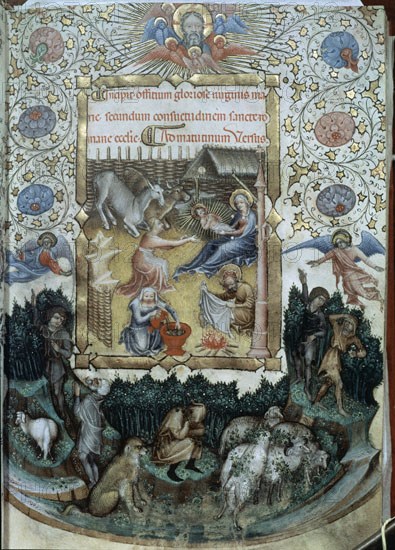 Incipit officium gloriose virginis ma
rie secundum consuetudinem sancte ro
mane ecclie Ad matutinum Versus